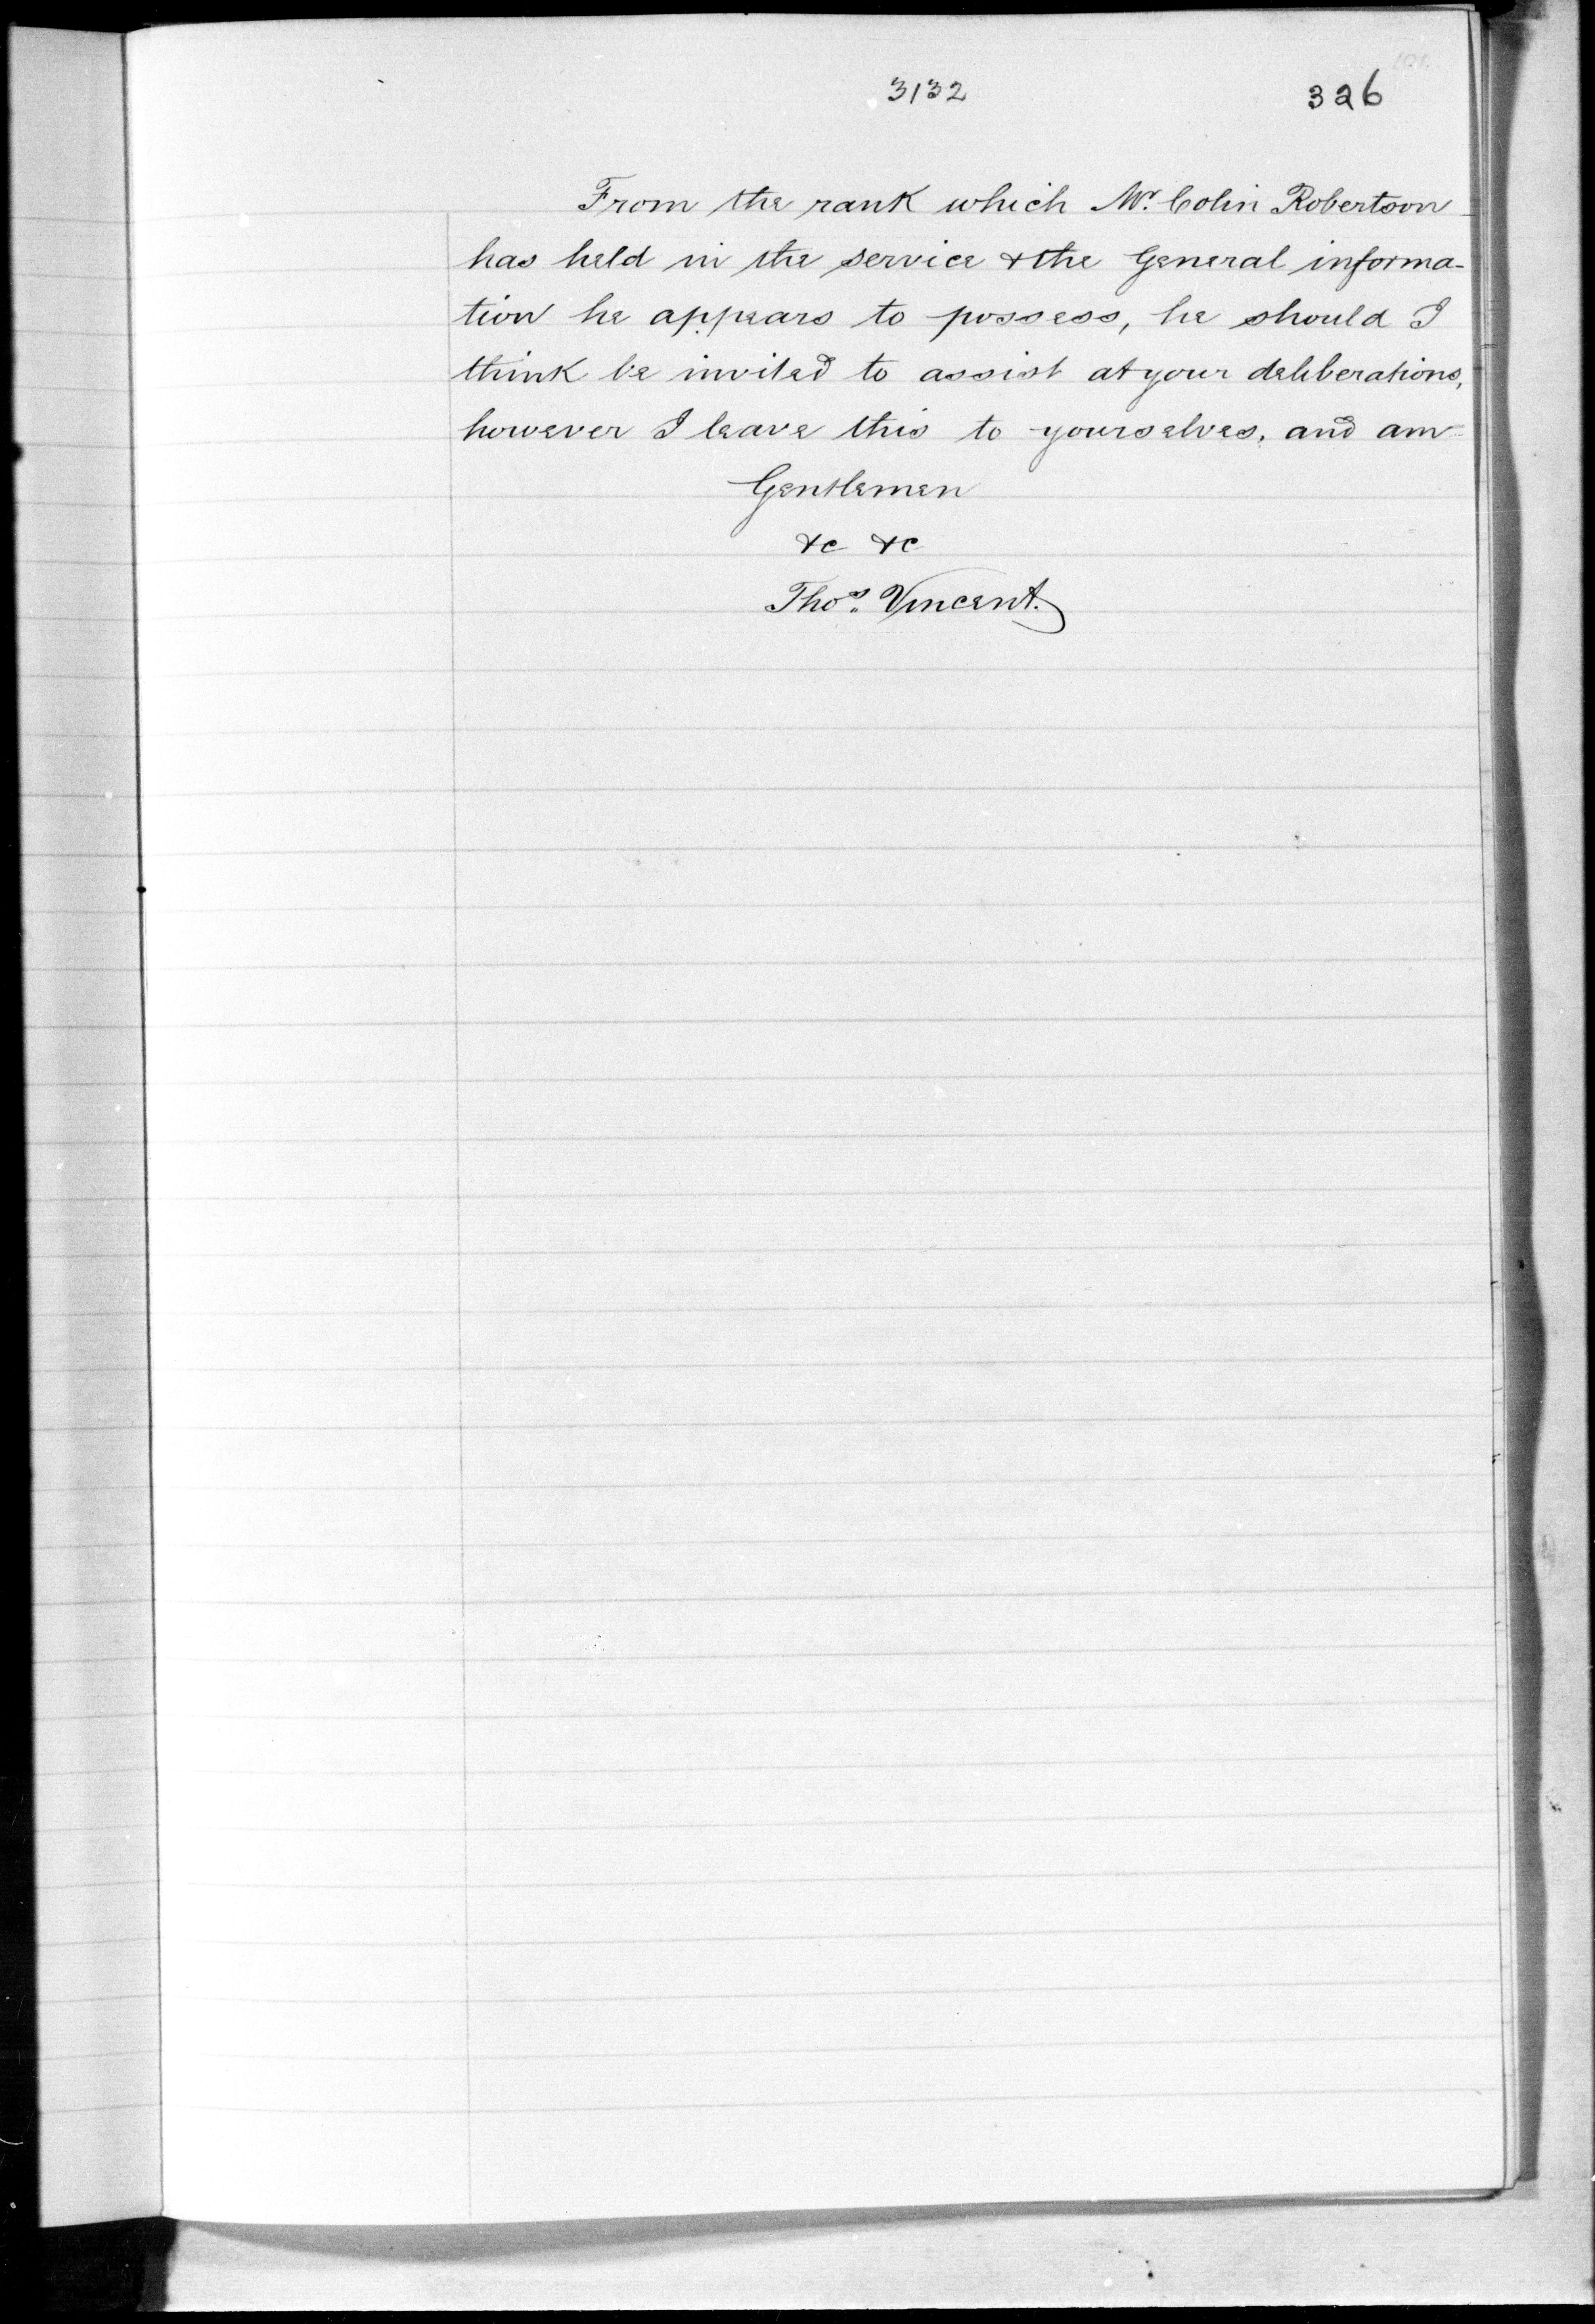 3132 326
From the rank which Mr. Colin Robertson
has held in the service & the General informa-
tion he appears to possess, he should I
think be invited to assist at your deliberations,
however I leave this to yourselves, and am
Gentlemen
&c &c
Thos. Vincent.